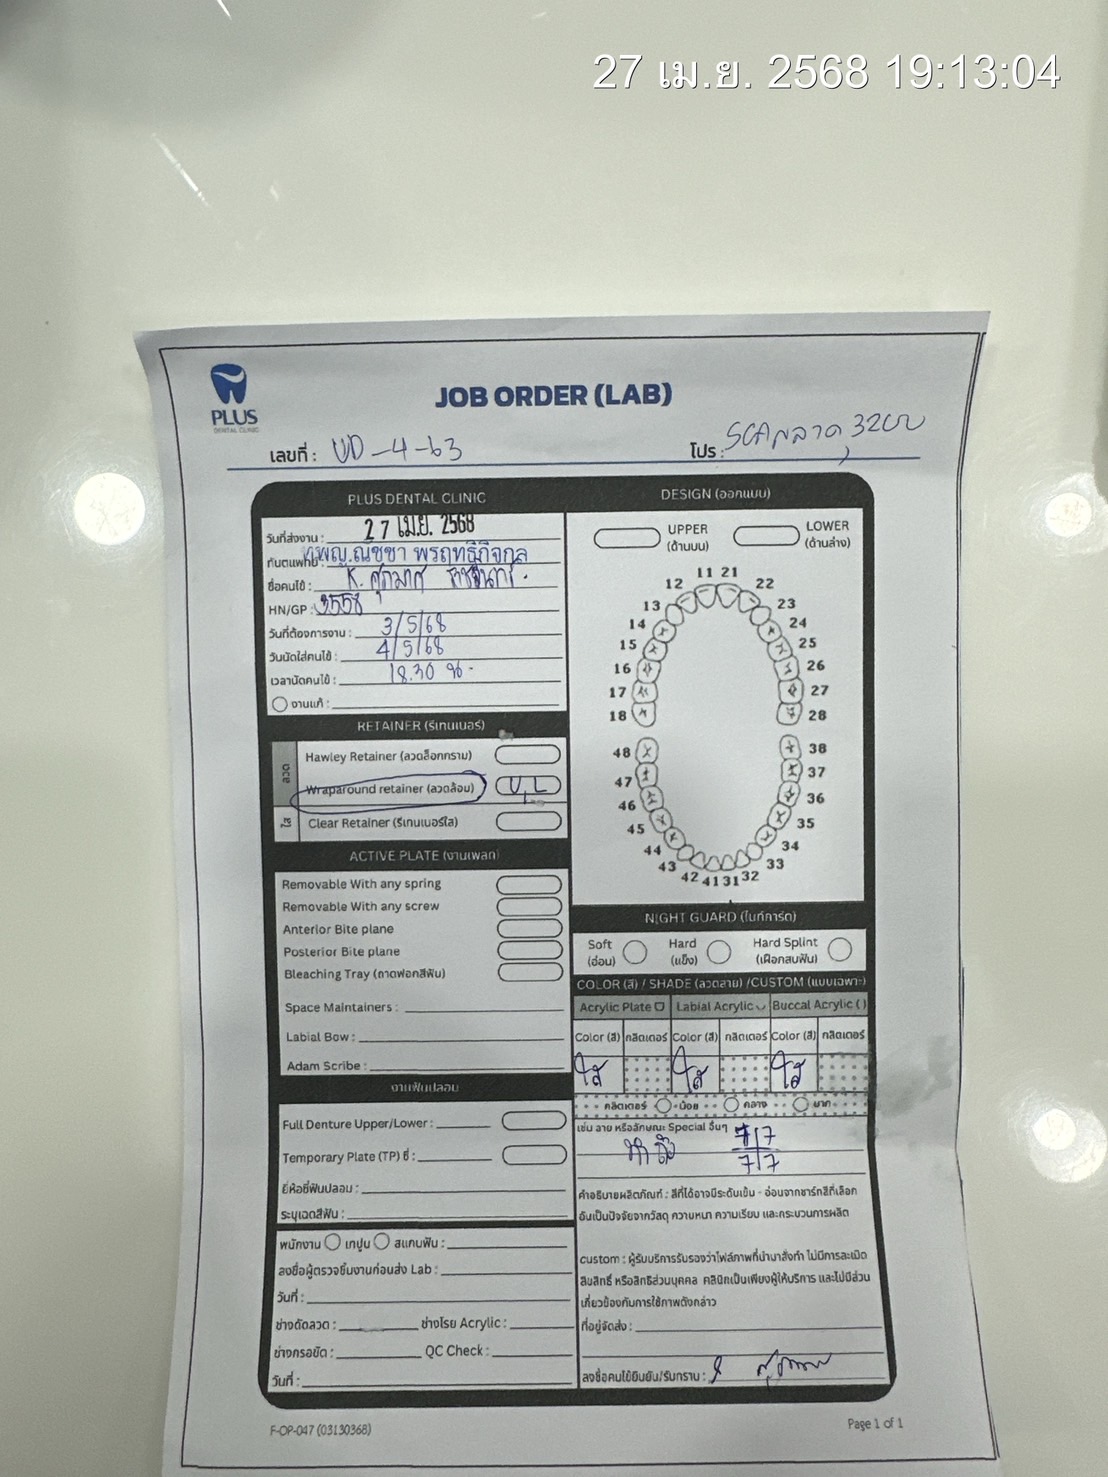 27 เม.ย. 2568 19:13:04
PLUS
DENTAL CLINIC
JOB ORDER (LAB)
เลขที่ : UD-4-63
โปร : SCANลวด 3200
PLUS DENTAL CLINIC
วันที่ส่งงาน : 27 เม.ย. 2568
ทันตแพทย์ : ทพญ.ณัชชา พรฤทธิ์กิจกุล
ชื่อคนไข้ : K.
HN/GP : 3558
วันที่ต้องการงาน : 3/5/68
วันนัดใส่คนไข้ : 4/5/68
เวลานัดคนไข้ : 18.30 น.
งานแก้ :
RETAINER (รีเทนเนอร์)
ลวด
Hawley Retainer (ลวดล็อกกราม)
Wraparound retainer (ลวดล้อม) U,L
ใส
Clear Retainer (รีเทนเนอร์ใส)
ACTIVE PLATE (งานเพลท)
Removable With any spring
Removable With any screw
Anterior Bite plane
Posterior Bite plane
Bleaching Tray (ถาดฟอกสีฟัน)
Space Maintainers :
Labial Bow :
Adam Scribe :
งานฟันปลอม
Full Denture Upper/Lower :
Temporary Plate (TP) ซี่ :
ยี่ห้อซี่ฟันปลอม :
ระบุเฉดสีฟัน :
พนักงาน เทปูน สแกนฟัน :
ลงชื่อผู้ตรวจชิ้นงานก่อนส่ง Lab :
วันที่ :
ช่างดัดลวด : ช่างโรย Acrylic :
ช่างกรอขัด : QC Check :
วันที่ :
DESIGN (ออกแบบ)
UPPER (ด้านบน) LOWER (ด้านล่าง)
11 21
12 22
13 23
14 24
15 25
16 26
17 27
18 28
48 38
47 37
46 36
45 35
44 34
43 33
42 41 31 32
NIGHT GUARD (ไนท์การ์ด)
Soft (อ่อน) Hard (แข็ง) Hard Splint (เฝือกสบฟัน)
COLOR (สี) / SHADE (ลวดลาย) /CUSTOM (แบบเฉพาะ)
Acrylic Plate Labial Acrylic Buccal Acrylic ( )
Color (สี) กลิตเตอร์ Color (สี) กลิตเตอร์ Color (สี) กลิตเตอร์
ใส ใส ใส
กลิตเตอร์ น้อย กลาง มาก
เช่น ลาย หรือลักษณะ Special อื่นๆ 7|7
7|7
คำอธิบายผลิตภัณฑ์ : สีที่ได้อาจมีระดับเข้ม - อ่อนจากชาร์ทสีที่เลือก
อันเป็นปัจจัยจากวัสดุ ความหนา ความเรียบ และกระบวนการผลิต
custom : ผู้รับบริการรับรองว่าไฟล์ภาพที่นำมาสั่งทำ ไม่มีการละเมิด
ลิขสิทธิ์ หรือสิทธิส่วนบุคคล คลินิกเป็นเพียงผู้ให้บริการ และไม่มีส่วน
เกี่ยวข้องกับการใช้ภาพดังกล่าว
ที่อยู่จัดส่ง :
ลงชื่อคนไข้ยืนยัน/รับทราบ :
F-OP-047 (03130368)
Page 1 of 1